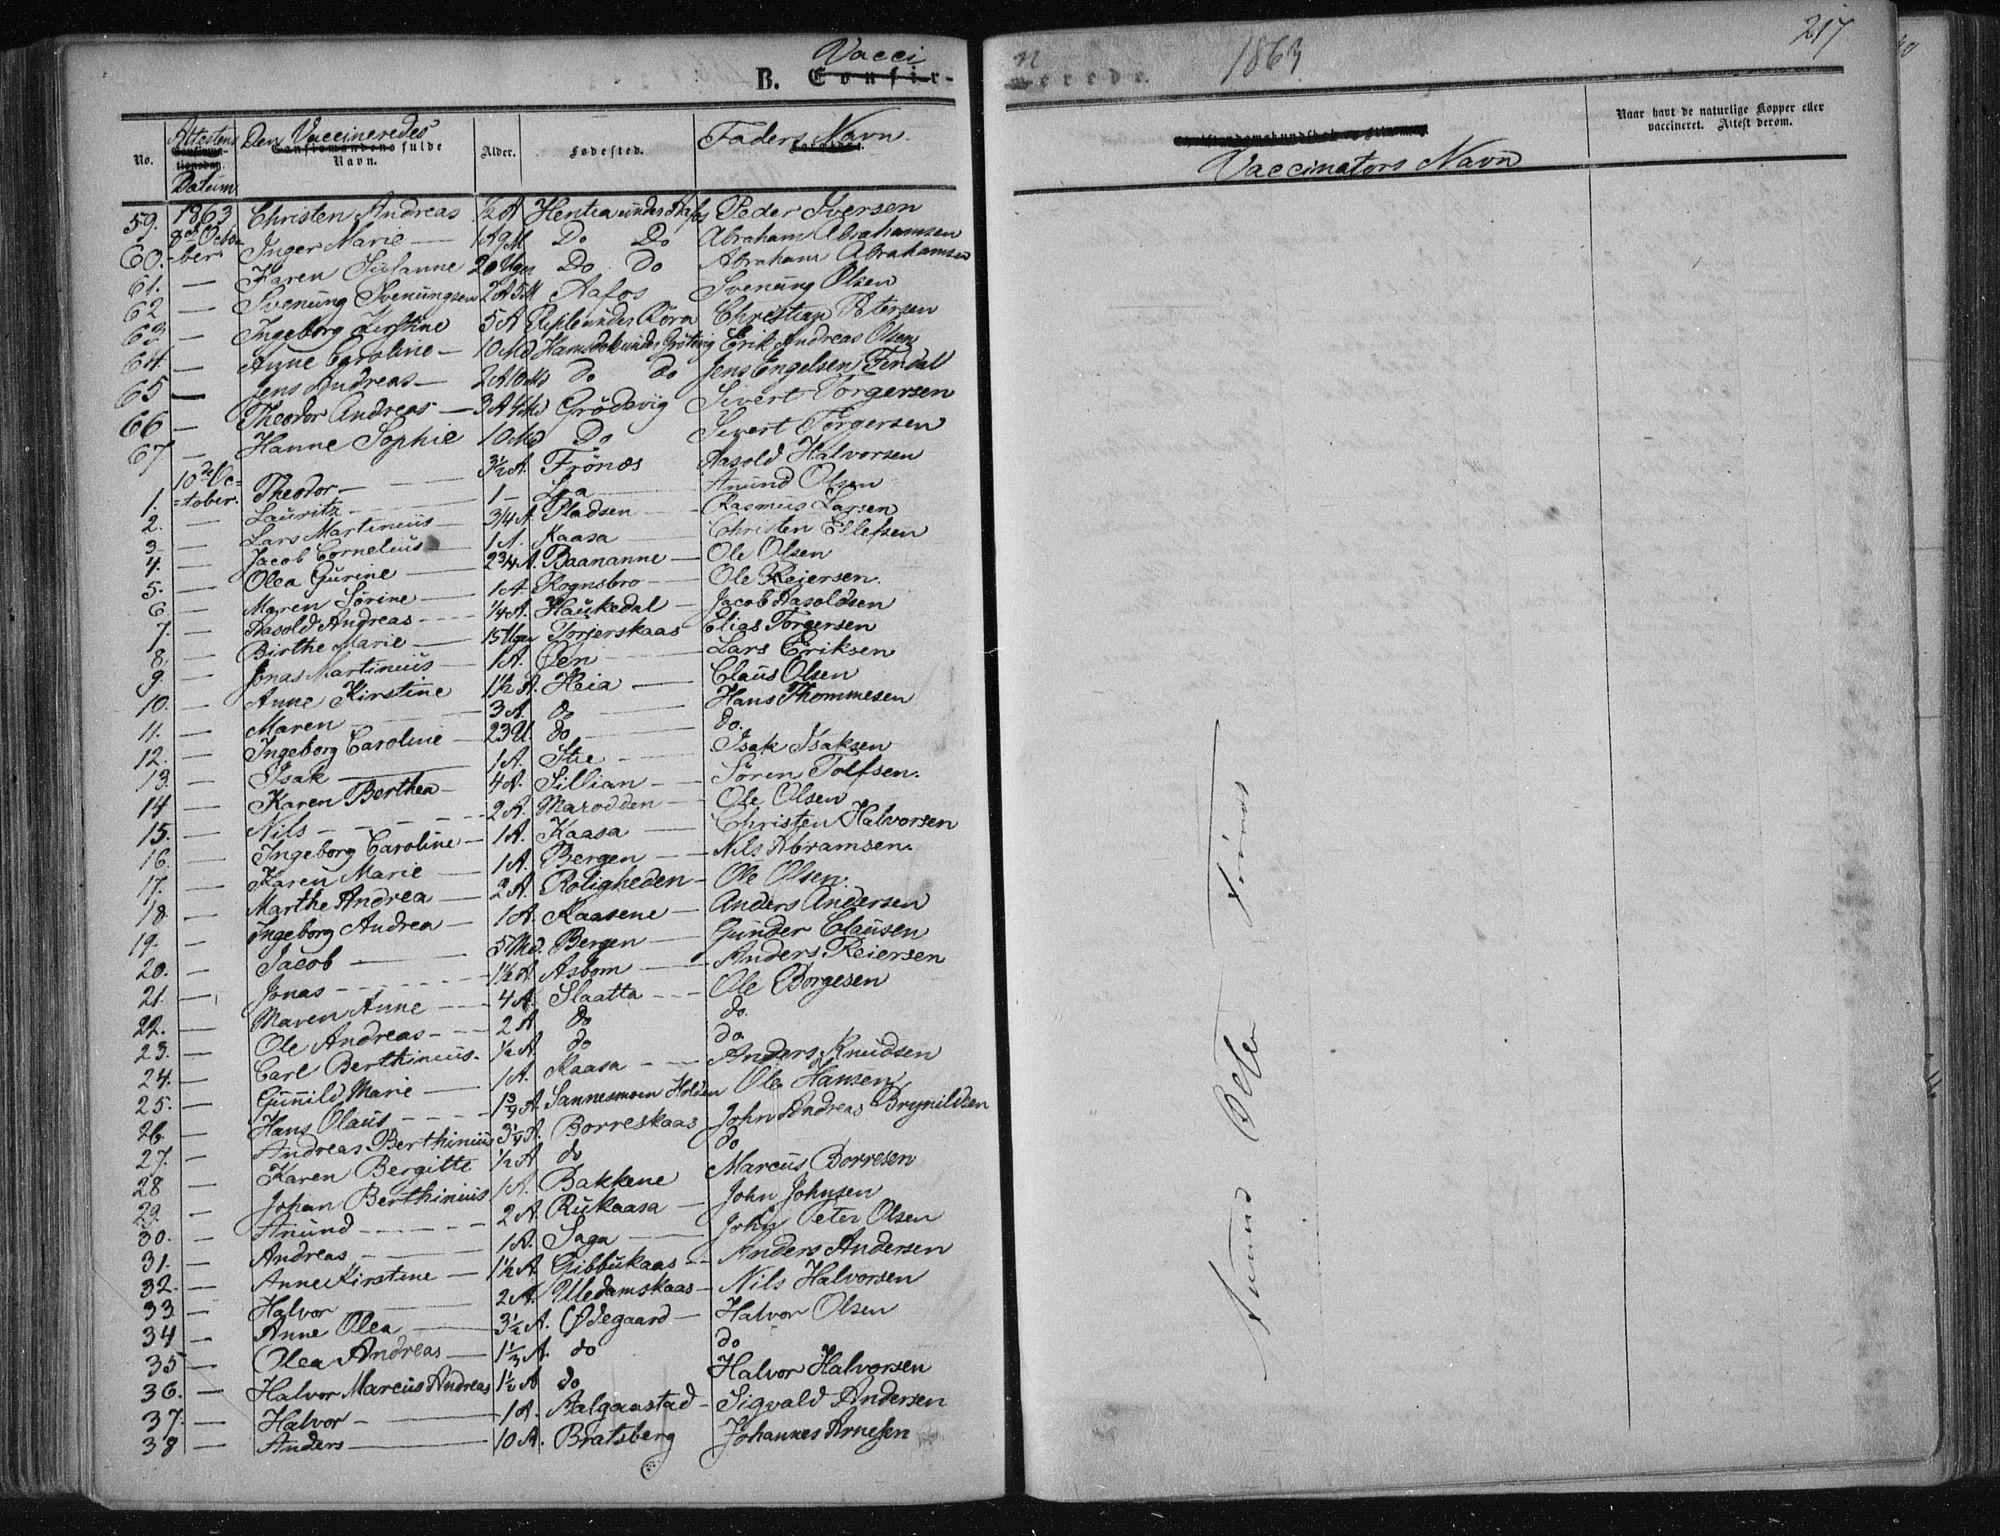 Vacci n 1863 217
B. Confir- merede.
No. Attestens Datum Den Vaccineredes fulde Navn. Alder. Fødested. Faders Navn Vaccinators Navn Naar havt de naturlige Kopper eller vaccineret. Attest derom.
59. 1863 Christen Andreas ½ A Hentea under Aafos Peder Iversen
60. 8de Octo-ber. Inger Marie 1 A 9 M Do Do Abraham Abrahamsen
61. — Karen Susanne 20 Uger Do do Abraham Abrahamsen
62 — Svenung Svenungsen 2 A 5 M Aafos Svenung Olsen
63 — Ingeborg Kirstine 5 A under Christian Petersen
64 — Anne Caroline 10 Md under Erik Andreas Olsen
65 — Jens Andreas 2 A 10 Md do do Jens Engelsen Findal
66 — Theodor Andreas 3 A 4 Md Grödevig Sivert Torgersen
67 — Hanne Sophie 10 Md Do Sivert Torgersen
1. 10de Oc=tober. Theodor 3½ A. Frönæs Aasold Halvorsen
2. — Lauritz 1 — Lea Anund Olsen
3 — Lars Martinius 3/4 A. Pladsen Rasmus Larsen
4. — Jacob Cornelius 1 A. Kaasa Christen Ellefsen
5. — Olea Gurine 2¾ A. Baananne Ole Olsen
6. — Maren Sörine 1 A Rognsbro Ole Reiersen.
7. — Aasold Andreas ¼ A. Haukedal Jacob Aasoldsen
8. — Birthe Marie 15 Uger Torjerskaas Elias Torgersen
9. — Jonas Martinius 1 A. Øen Lars Eriksen
10. — Anne Kirstine 1½ A. Heia Claus Olsen
11. — Maren 3 A. do Hans Thommesen
12. — Ingeborg Caroline 23 U do do.
13. — Isak 1 A. Stie Isak Isaksen
14 — Karen Berthea 4 A. Sillian Sören Tolfsen.
15. — Nils 2 A. Marodden Ole Olsen
16. — Ingeborg Caroline 1 A. Kaasa Christen Halvorsen
17. — Karen Marie 1 A. Bergen Nils Abramsen.
18. — Marthe Andrea 2 A. Roligheden Ole Olsen.
19. — Ingeborg Andrea 1 A. Kaasene Anders Andersen
20. — Jacob 5 Md. Bergen Gunder Clausen
21. — Jonas 1½ A. Asbom Anders Reiersen
22. — Maren Anne 4 A. Slaatta Ole Borgesen
23. — Ole Andreas 2 A do do.
24. — Carl Berthinius ½ A do do
25. — Gunild Marie 1 A. Kaasa Anders Knudsen
26 — Hans Olaus 1¾ A Sannesmoen Holden Ole Hansen
27. — Andreas Berthinius 3¼ A. Borreskaas John Andreas Brynildsen
28 — Karen Bergitte ½ A do do
29. — Johan Berthinius 1 A. Bakkene Marcus Borresen
30. — Anund 2 A Rukaasa John Johnsen
31. — Andreas 1 A. Saga John Peter Olsen
32. — Anne Kirstine 1½ A. Gibbukaas Anders Andersen
33 — Halvor 2 A. Uledamskaas Nils Halvorsen
34 — Anne Olea 3½ A. Ødegaard Halvor Olsen
35 — Olea Andreas 1⅓ A. do do
36. — Halvor Marcus Andreas 1½ A do Halvor Halvorsen
37. — Halvor 1 A. Aalgaastad Sigvald Andersen
38 — Anders 10 A. Bratsberg Johannes Arnesen
Anund Peter Frönæs